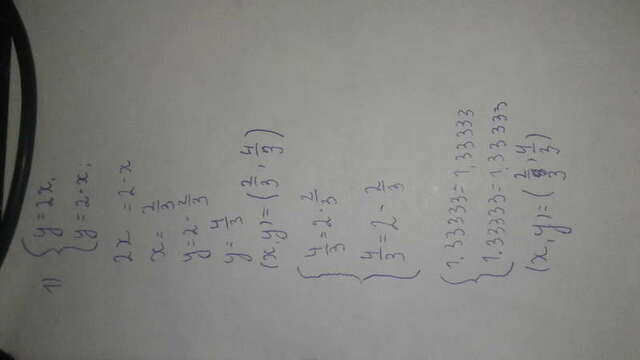 1) { y = 2x,
y = 2 - x;
2x = 2 - x
x = 2/3
y = 2 - 2/3
y = 4/3
(x, y) = (2/3, 4/3)
{ 4/3 = 2 · 2/3
4/3 = 2 - 2/3
{ 1,33333 = 1,33333
1.33333 = 1,33333
(x, y) = (2/3, 4/3)